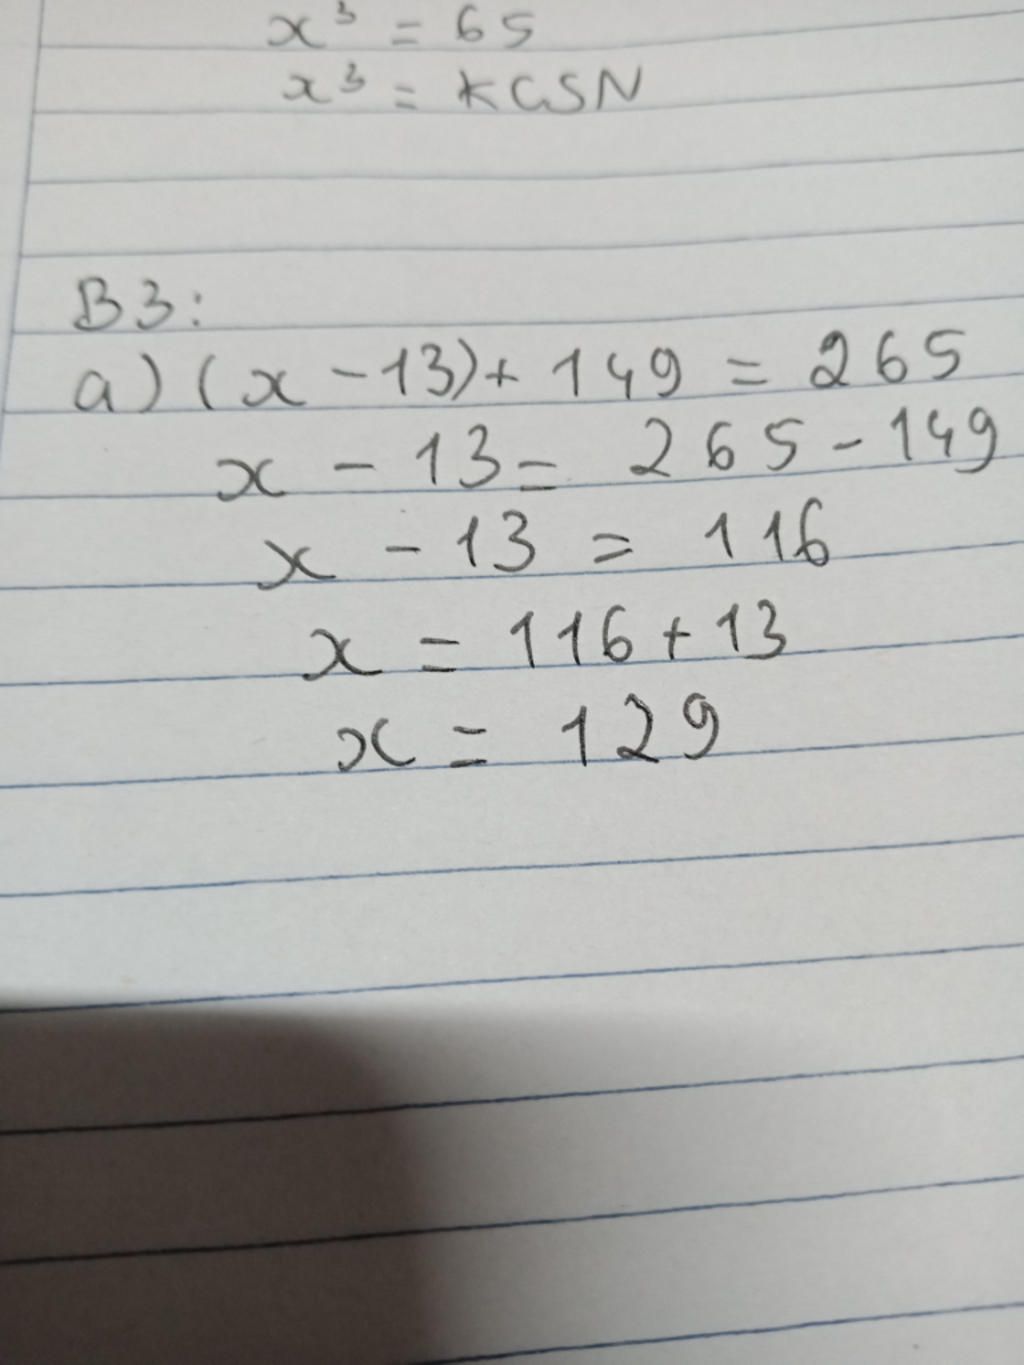 x³ = 65
x³ = KGSN
B3:
a) (x - 13) + 149 = 265
x - 13 = 265 - 149
x - 13 = 116
x = 116 + 13
x = 129